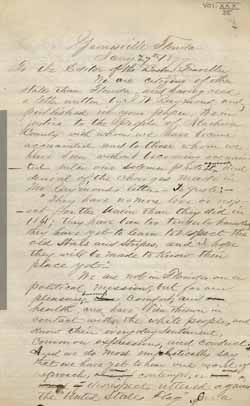 VOL XXX
Gainesville Florida
Jany 27th 18
To the Editor of the Boston Traveller
We are citizens of other
States than Florida, and having read
a letter written by and
published in your paper, think
justice to the people of Alachua
County with whom we have become
acquainted and to those whom we
have seen without becoming acquain-
ted enter our solemn protest and
denial of the charges made in
Mr. Raymonds letter. Towit:—
"They have no more love or resp-
ect for the Union than they did in
1861; they have too
they have got to learn to respect the
old Stars and Stripes, and I hope
they will be made to know their
place yet."
We are not in Florida on any
political mission, but for our
pleasure comfort, and
health, and have been thrown in
contact with the white people, and
know their every day sentiment,
common expressions, and conduct,
And we do most emphatically say
that we have yet to hear one word of
reproach, or contempt, or
disrespect uttered against
the United States Flag.